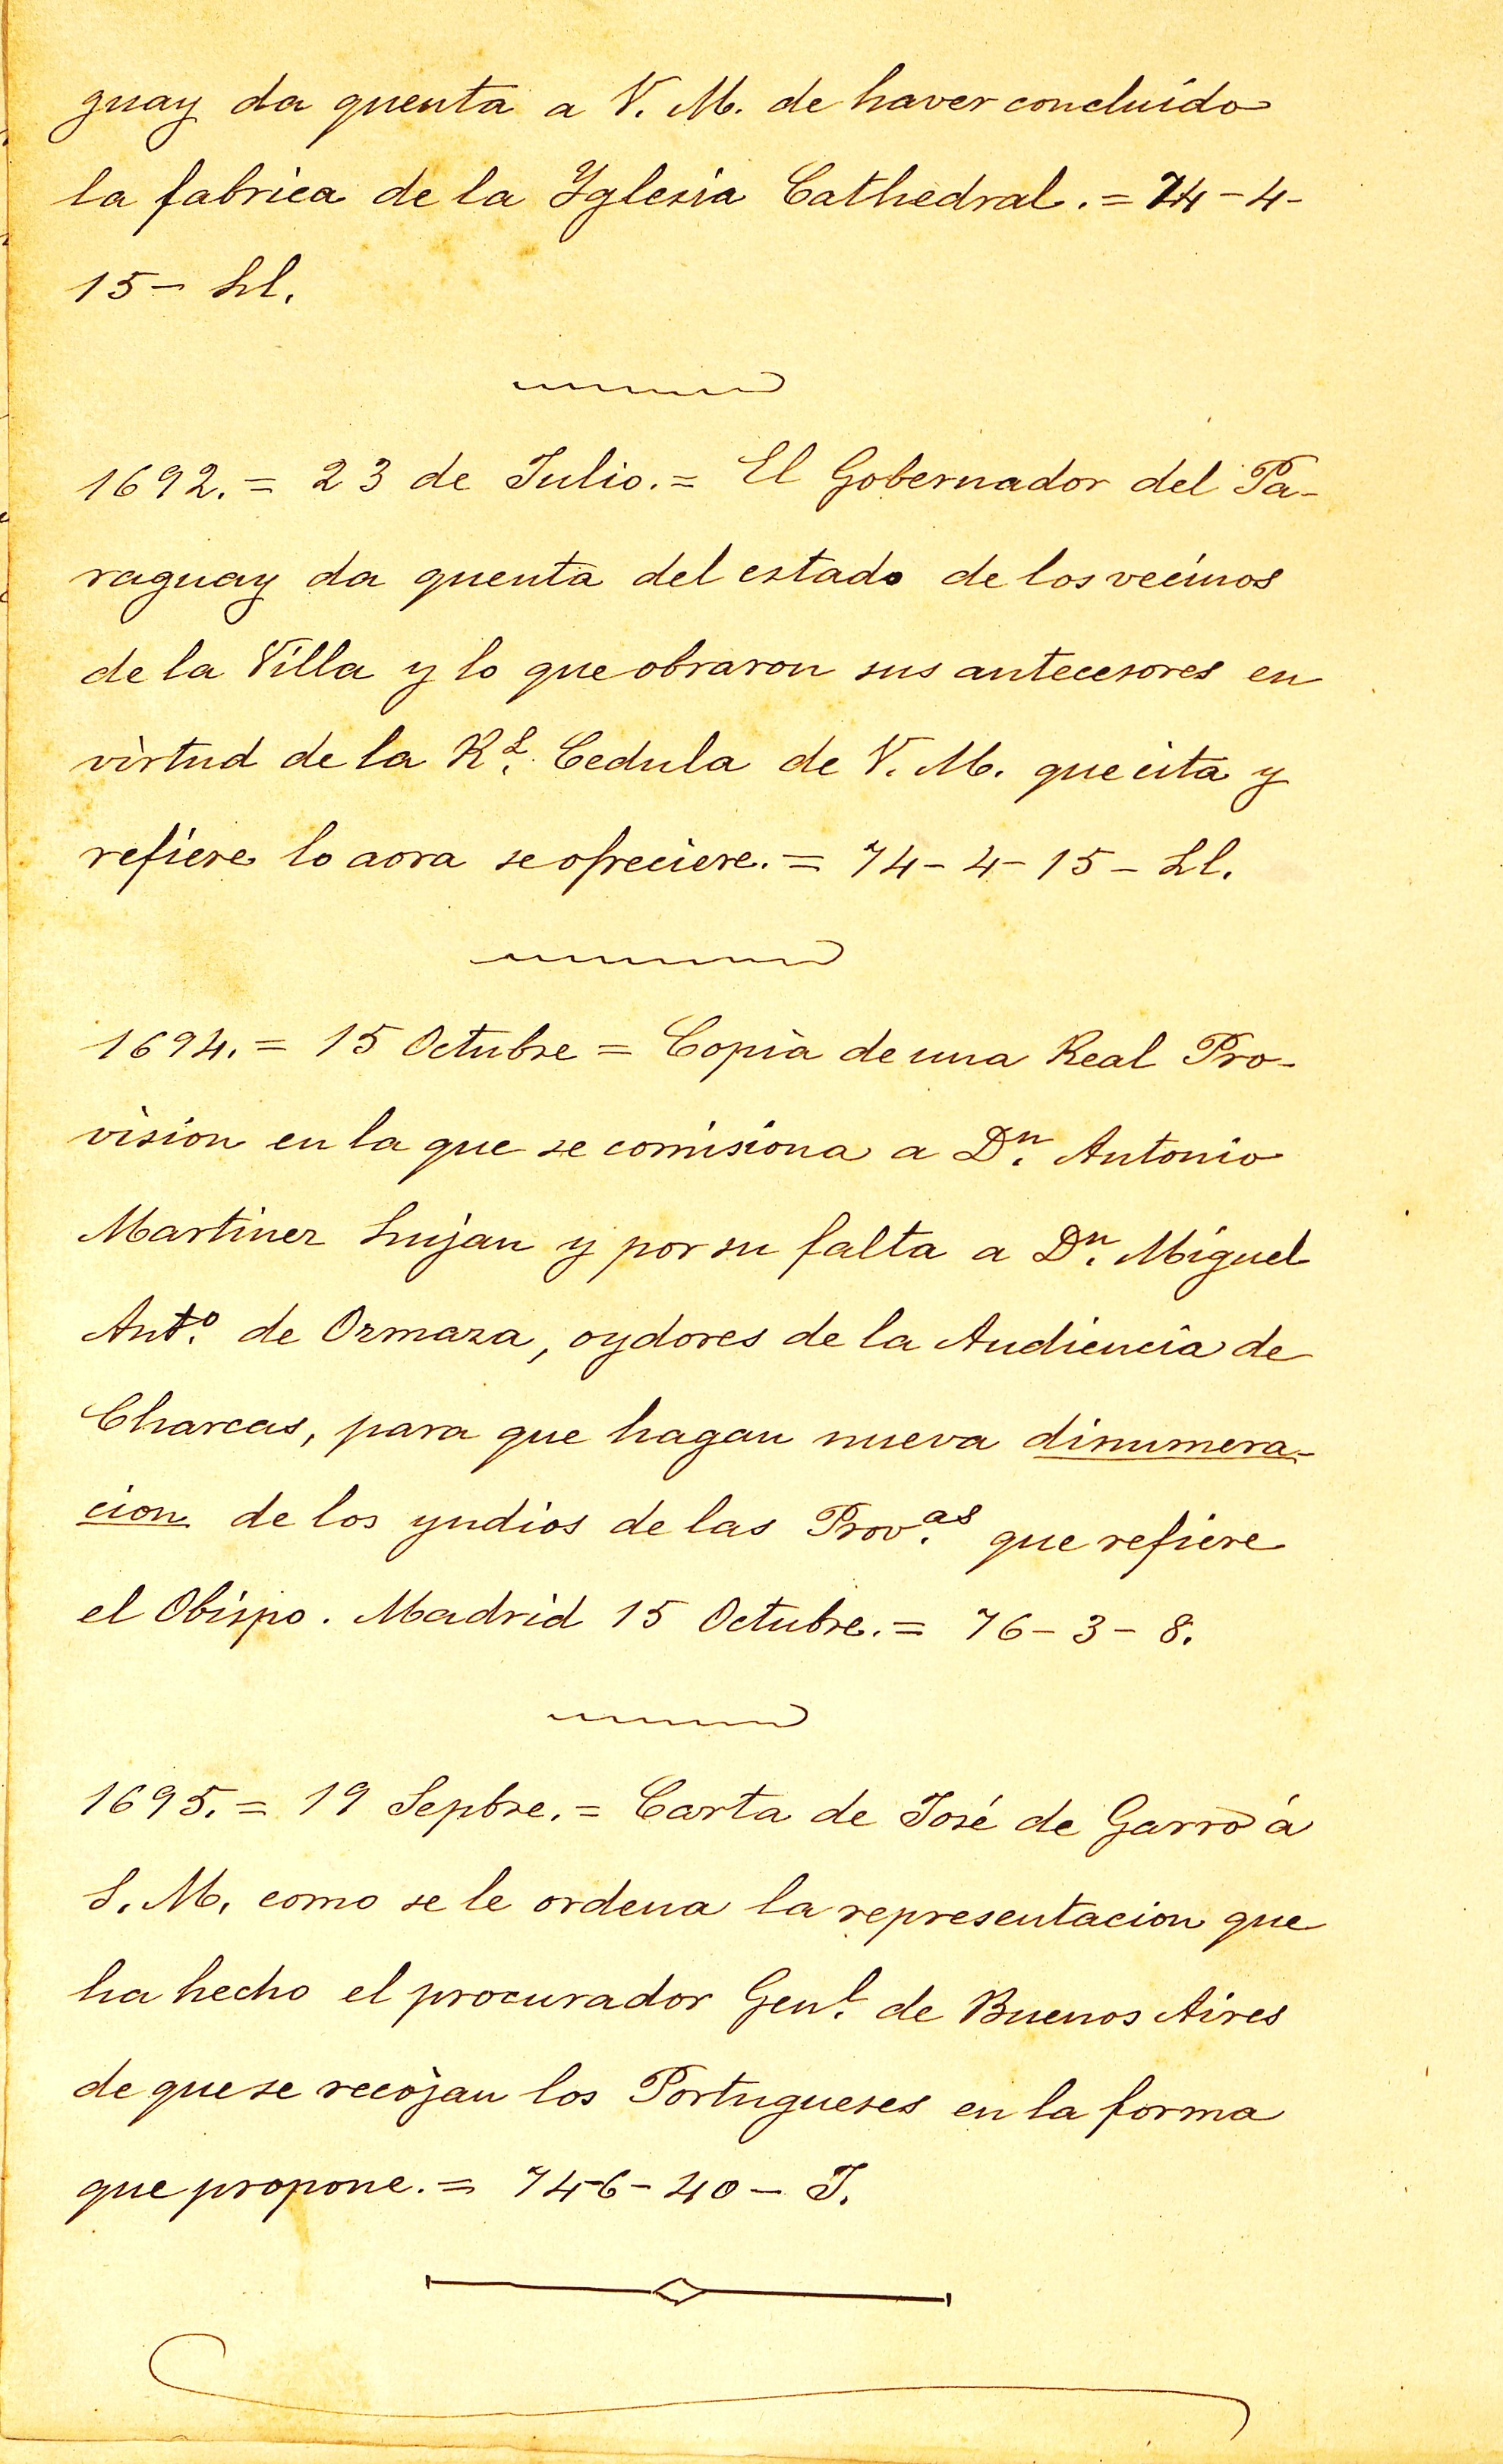 guay da quenta a V. M. de haver concluido
la fabrica de la Yglesia Cathedral. = 74-4-
15- Ll.
1692. = 23 de Julio. = El Gobernador del Pa-
raguay da quenta del estado de los vecinos
de la Villa y lo que obraron sus antecesores en
virtud de la Rl. Cedula de V. M. que cita y
refiere lo aora se ofreciere. = 74-4-15- Ll.
1694. = 15 Octubre = Copia de una Real Pro-
vision en la que se comisiona a Dn. Antonio
Martinez Lujan y por su falta a Dn. Miguel
Anto. de Ormaza, oydores de la Audiencia de
Charcas, para que hagan nueva dinumera-
cion de los yndios de las Provas. que refiere
el Obispo. Madrid 15 Octubre. = 76-3-8.
1695. = 19 Sepbre. = Carta de José de Garro á
S. M. como se le ordena la representacion que
ha hecho el procurador Genl. de Buenos Aires
de que se recojan los Portugueses en la forma
que propone. = 74-6-40- J.